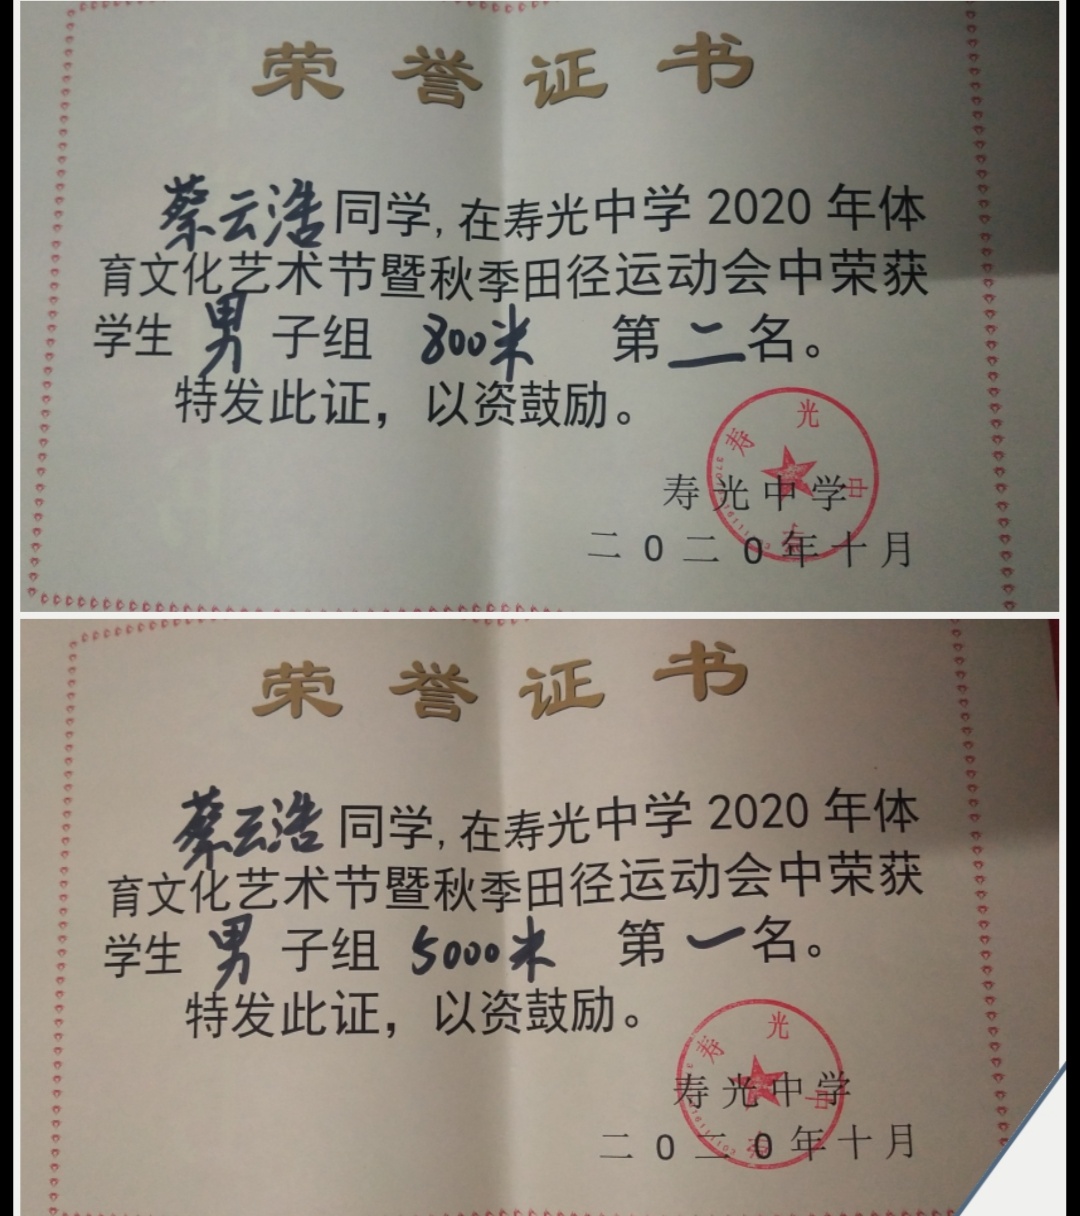 荣誉证书
蔡云浩同学,在寿光中学2020年体
育文化艺术节暨秋季田径运动会中荣获
学生 男 子组 800米 第二名。
特发此证，以资鼓励。
寿光中学
寿光中学
二0二0年十月
荣誉证书
蔡云浩同学,在寿光中学2020年体
育文化艺术节暨秋季田径运动会中荣获
学生 男 子组 5000米 第一名。
特发此证，以资鼓励。
寿光中学
寿光中学
二0二0年十月